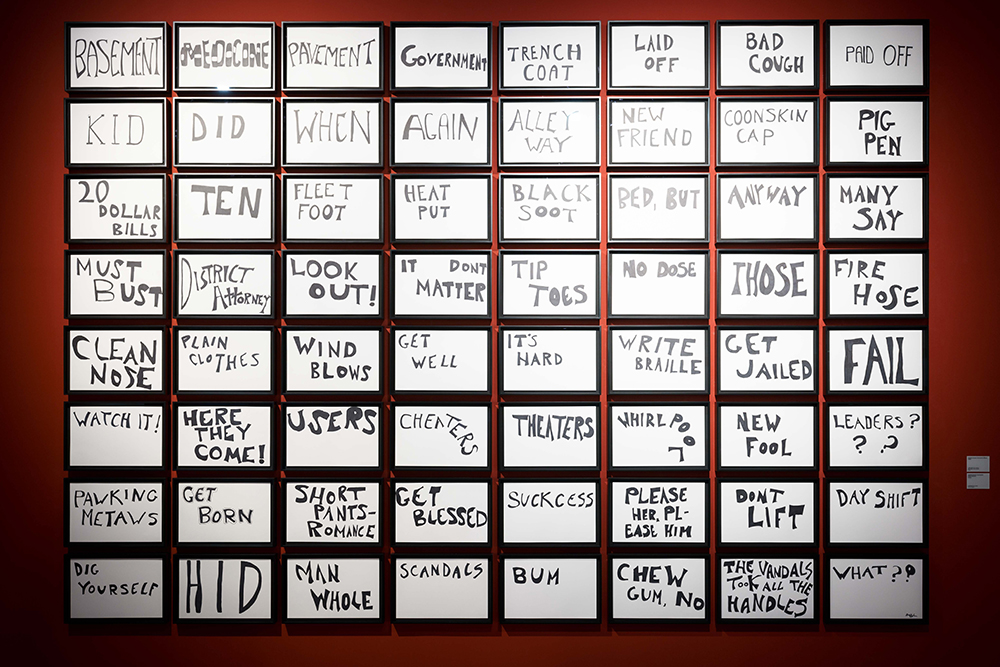 BASEMENT
MEDICINE
PAVEMENT
GOVERNMENT
TRENCH
COAT
LAID
OFF
BAD
COUGH
PAID OFF
KID
DID
WHEN
AGAIN
ALLEY
WAY
NEW
FRIEND
COONSKIN
CAP
PIG
PEN
20
DOLLAR
BILLS
TEN
FLEET
FOOT
HEAT
PUT
BLACK
SOOT
BED, BUT
ANYWAY
MANY
SAY
MUST
BUST
DISTRICT
ATTORNEY
LOOK
OUT!
IT DONT
MATTER
TIP
TOES
NO DOSE
THOSE
FIRE
HOSE
CLEAN
NOSE
PLAIN
CLOTHES
WIND
BLOWS
GET
WELL
IT'S
HARD
WRITE
BRAILLE
GET
JAILED
FAIL
WATCH IT!
HERE
THEY
COME!
USERS
CHEATERS
THEATERS
WHIRLPOOL
NEW
FOOL
LEADERS?
??
PAWKING
METAWS
GET
BORN
SHORT
PANTS-
ROMANCE
GET
BLESSED
SUCKCESS
PLEASE
HER, PL-
EASE HIM
DONT
LIFT
DAY SHIFT
DIG
YOURSELF
HID
MAN
WHOLE
SCANDALS
BUM
CHEW
GUM, NO
THE VANDALS
TOOK ALL THE
HANDLES
WHAT??